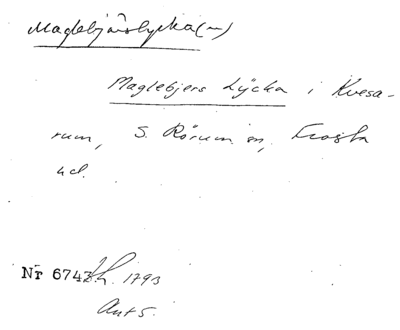 Maglebjärslycka (~)
Maglebjers Lycka i Kvesa-
rum, S. Rörum sn, Frosta
hd.
Nr 6743 Lh. 1793
Ant 5.